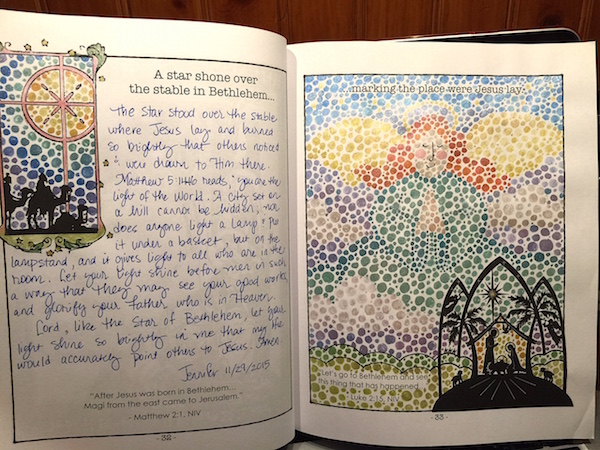 A star shone over
the stable in Bethlehem...
The star stood over the stable
where Jesus lay and burned
so brightly that others noticed
& were drawn to Him there.
Matthew 5:14-16 reads, "you are the
light of the World. A city set on
a hill cannot be hidden, nor
does anyone light a lamp & put
it under a basket, but on the
lampstand, and it gives light to all who are in the
room. Let your light shine before men in such
a way that they may see your good works,
and glorify your Father who is in Heaven.
Lord, like the Star of Bethlehem, let your
light shine so brightly in me that my life
would accurately point others to Jesus. Amen
Jennifer 11/29/2015
"After Jesus was born in Bethlehem...
Magi from the east came to Jerusalem."
- Matthew 2:1, NIV
- 32 -
...marking the place were Jesus lay.
Let's go to Bethlehem and see
this thing that has happened...
- Luke 2:15, NIV
- 33 -